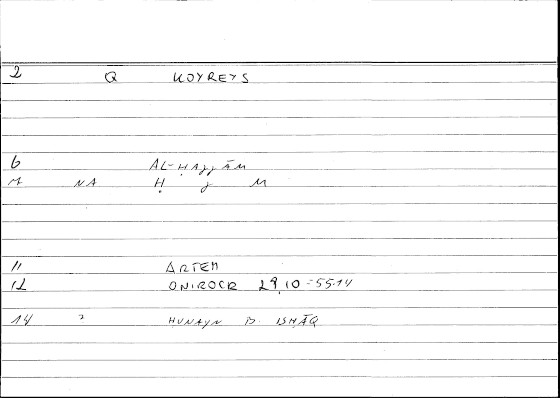 2 Q KOYREYS
6 AL-ḤAJJĀM
M NA Ḥ J M
11 ARTEM
12 ONIROCR 29,10 = 55.14
14 ? HUNAYN B. ISHĀQ